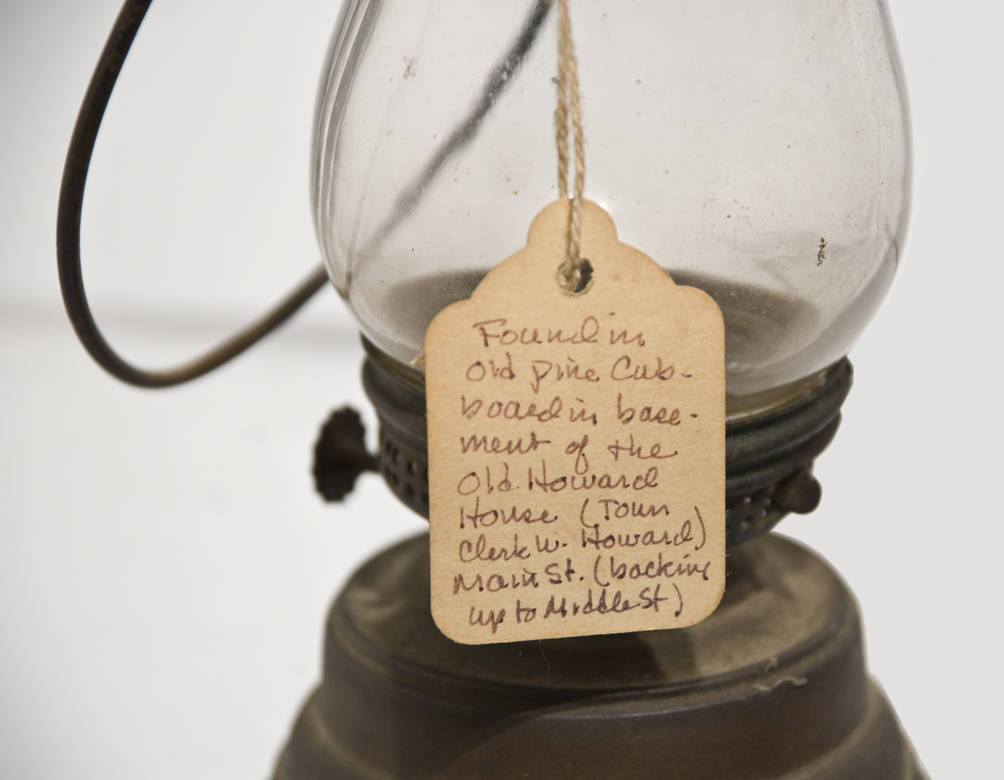 Found in
Old pine Cub-
board in base-
ment of the
Old Howard
House (Town
Clerk W. Howard)
Main St. (backing
up to Middle St)